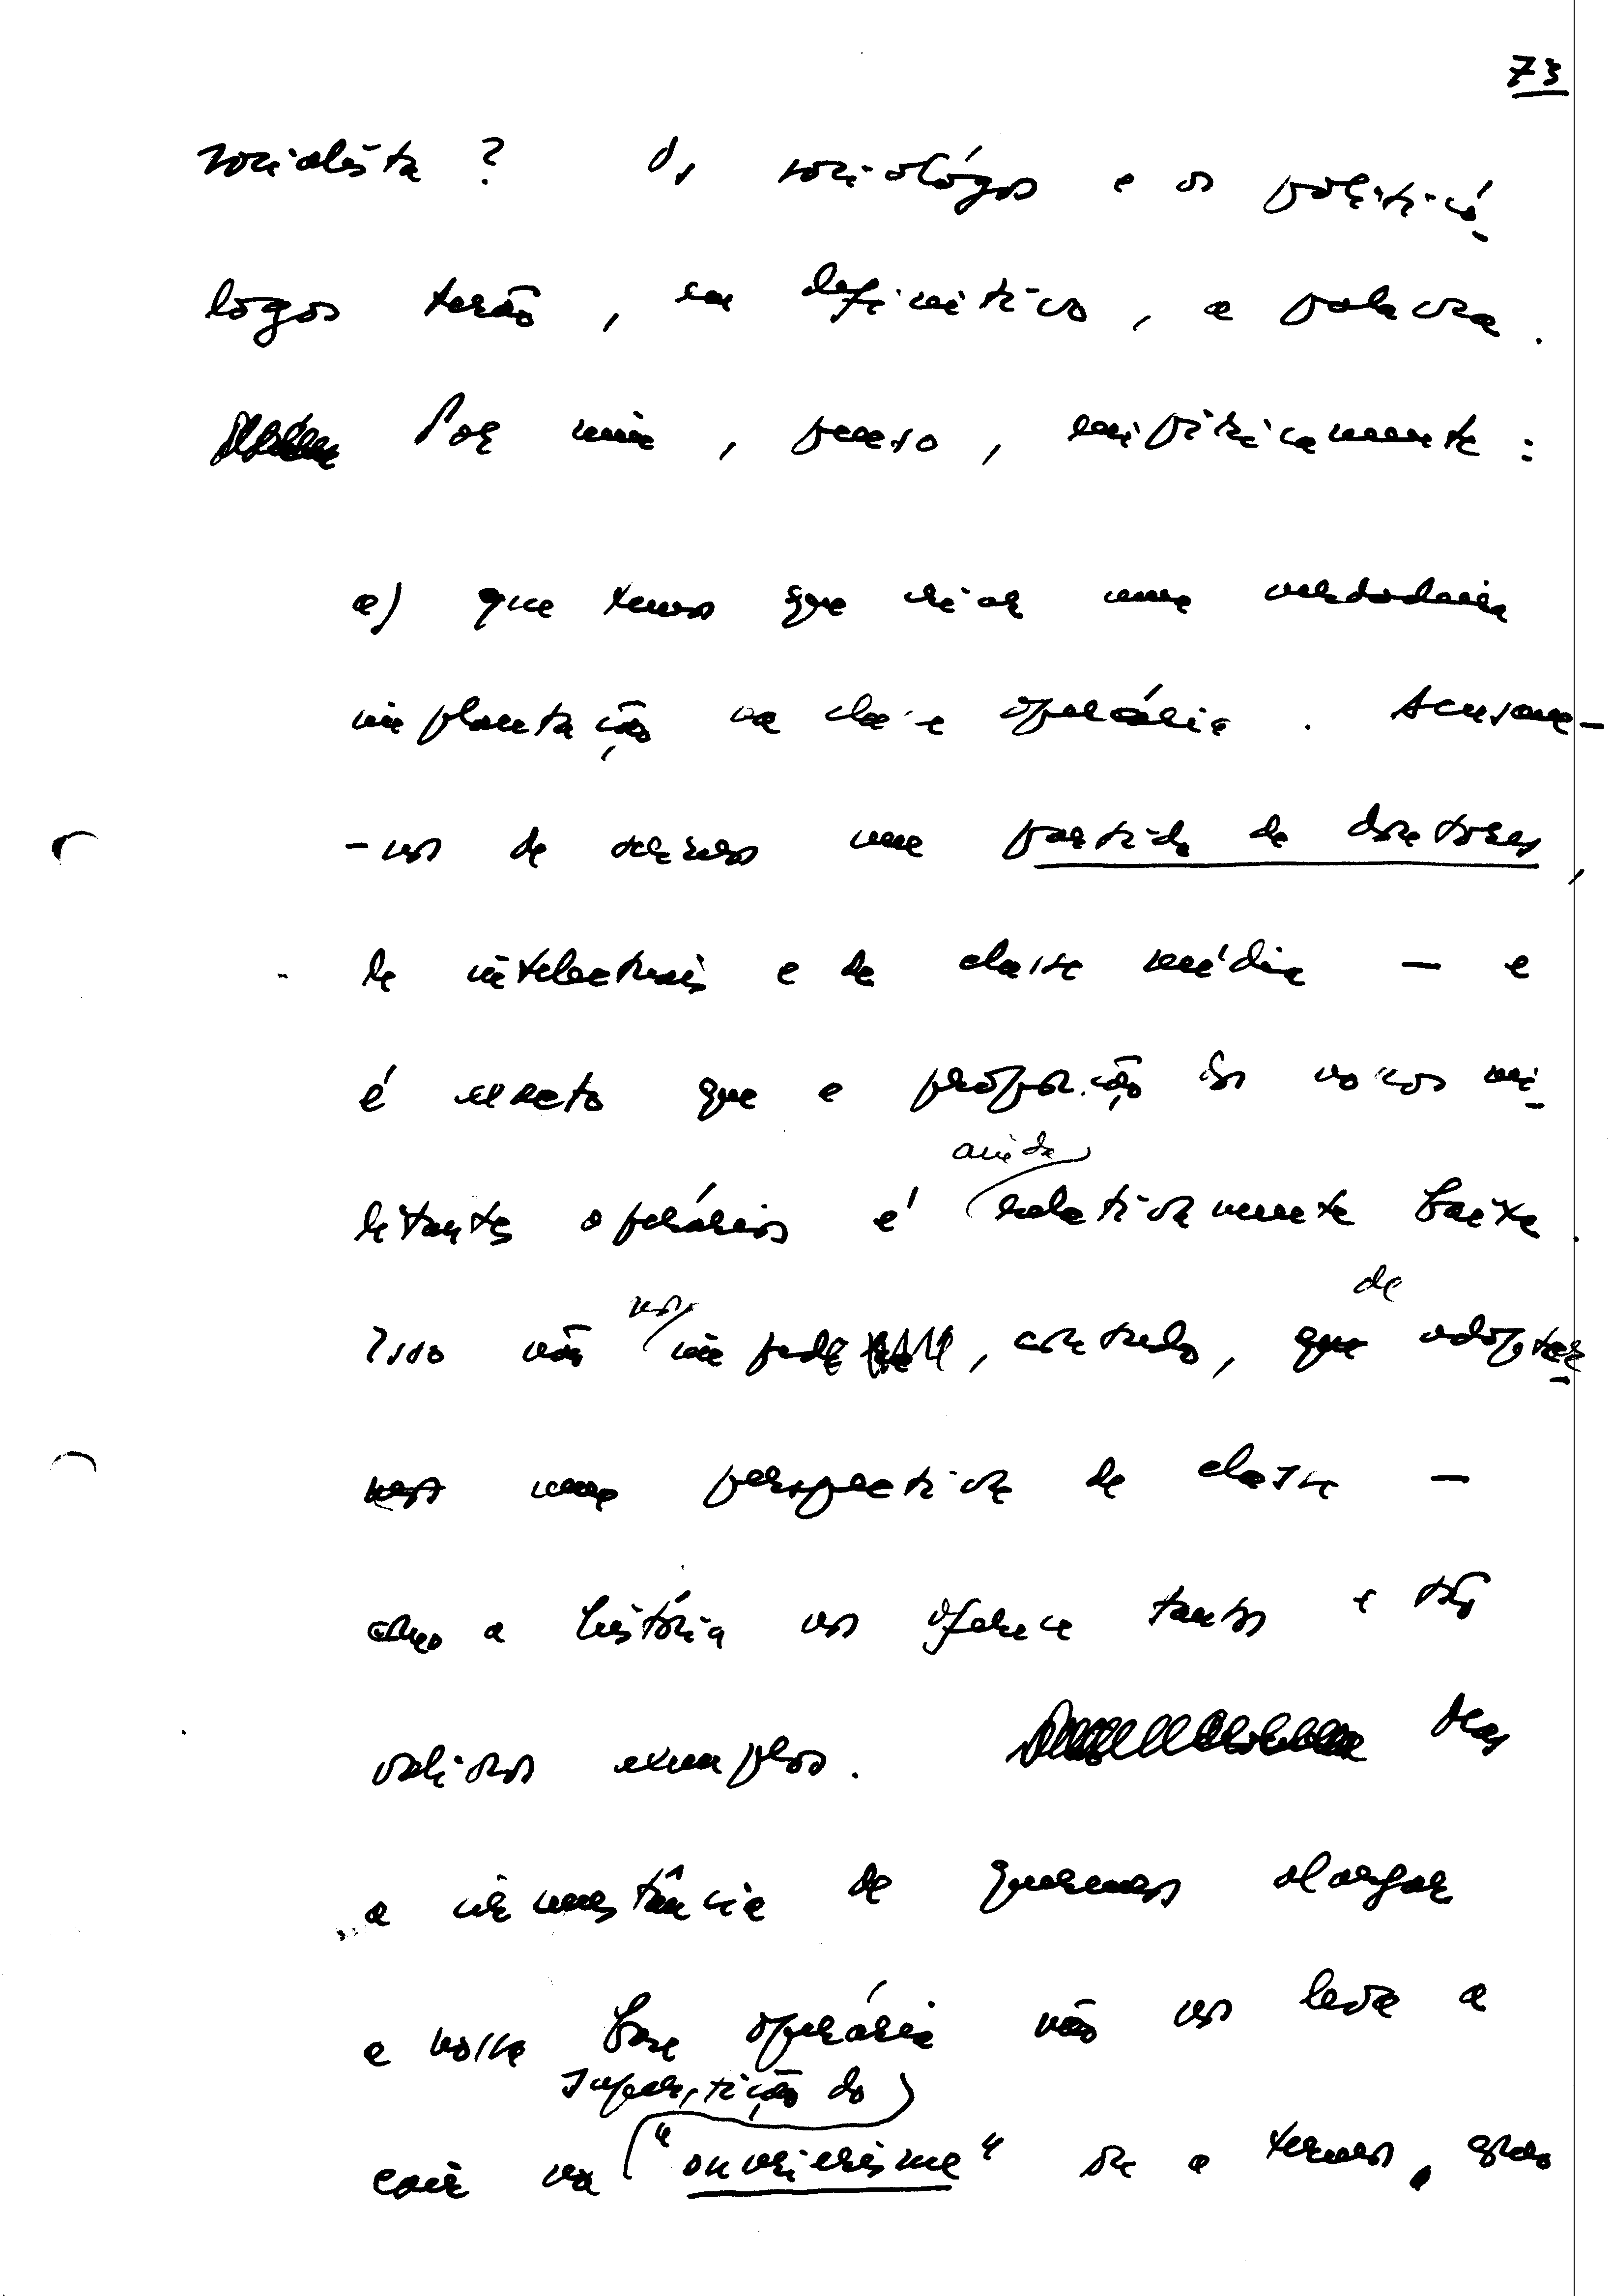 73
socialista? Os sociológos e os politicó-
logos terão, em definitivo, a palavra.
Por mim, penso, empiricamente:
a) que temos que criar uma verdadeira
implantação na classe operária. Acusam-
-nos de sermos um partido de doutores,
de intelectuais e de classe média — e
é exacto que a proporção dos nossos mi-
ainda
litantes operários é relativamente baixa.
nos de
Isso não impede, contudo, que adoptem-
uma perspectiva de classe —
como a história nos oferece tantos e tão
valiosos exemplos. Mas
a circunstância de querermos alargar
a nossa base operária não nos leva a
superstição do
cair na "ouvrierisme" ou a termos,